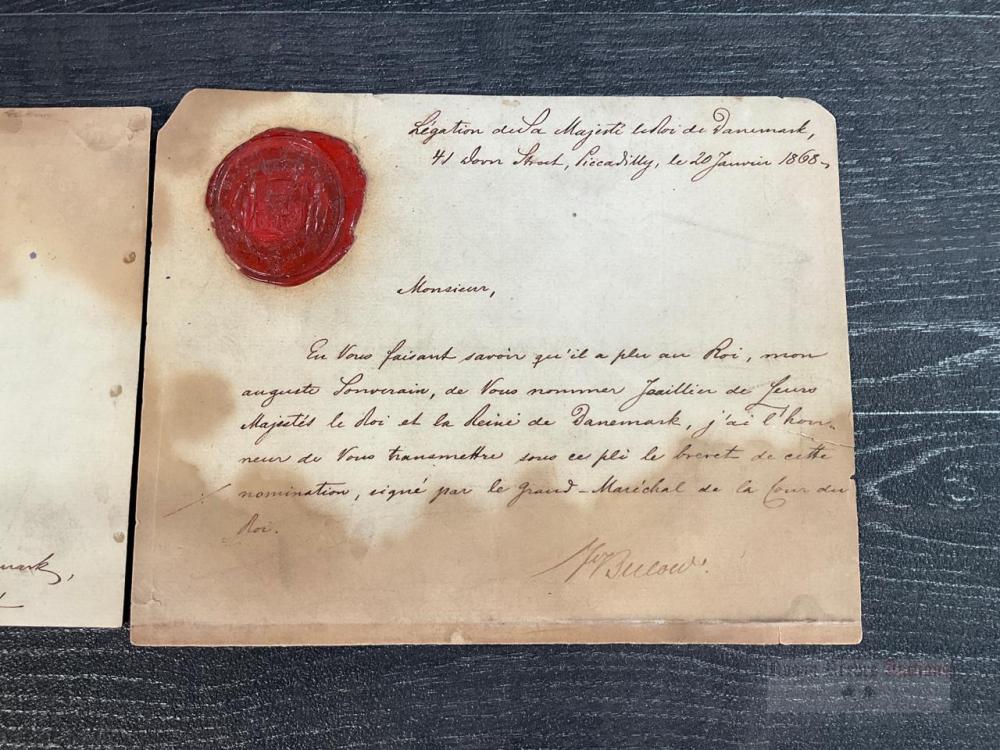 Légation de Sa Majesté le Roi de Danemark,
41 Dover Street, Piccadilly, le 20 Janvier 1868,
Monsieur,
En Vous faisant savoir qu'il a plu au Roi, mon
auguste Souverain, de Vous nommer Joaillier de Leurs
Majestés le Roi et la Reine de Danemark, j'ai l'hon-
neur de Vous transmettre sous ce pli le brevet de cette
nomination, signé par le Grand-Maréchal de la Cour du
Roi.
Bülow.